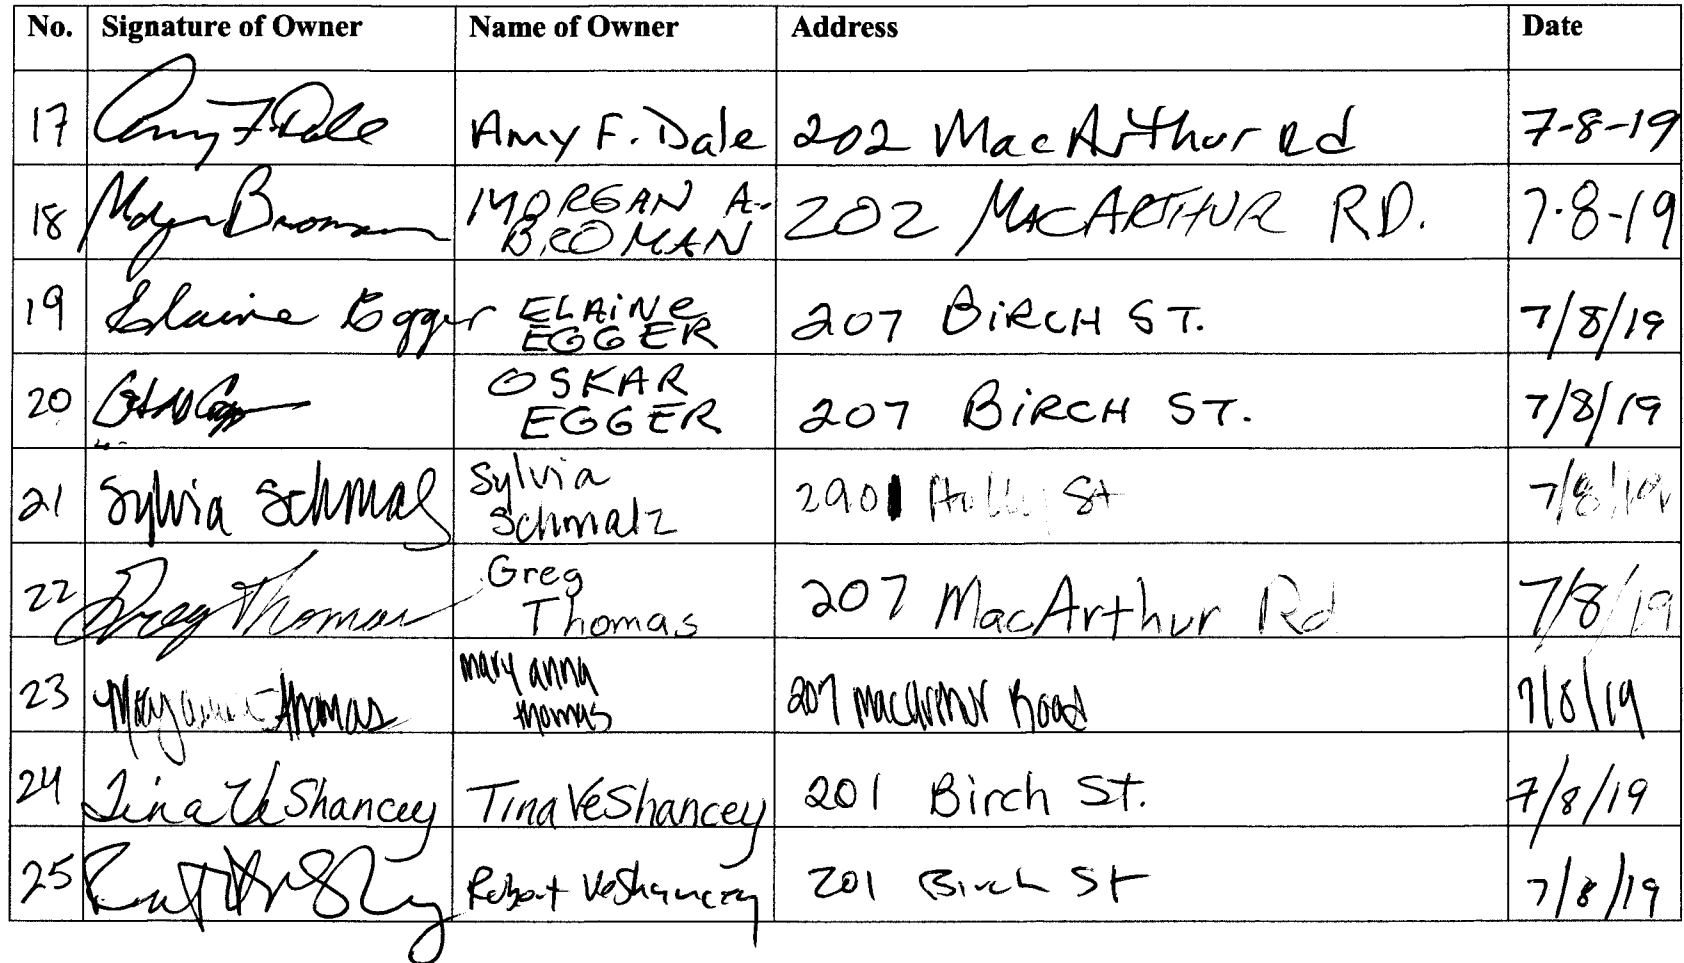 No. Signature of Owner Name of Owner Address Date
17 Amy F. Dale Amy F. Dale 202 MacArthur Rd 7-8-19
18 Morgan Broman MORGAN A. BROMAN 202 MACARTHUR RD. 7-8-19
19 Elaine Egger ELAiNe EGGER 207 BiRCH ST. 7/8/19
20 OSKAR EGGER 207 BiRCH ST. 7/8/19
21 Sylvia Schmalz Sylvia Schmalz 2901 Holly St 7/8/19
22 Greg Thomas Greg Thomas 207 MacArthur Rd 7/8/19
23 Mary anna Thomas mary anna thomas 207 macArthur Road 7/8/19
24 Tina VeShancey Tina VeShancey 201 Birch St. 7/8/19
25 Robert VeShancey 201 Birch St 7/8/19